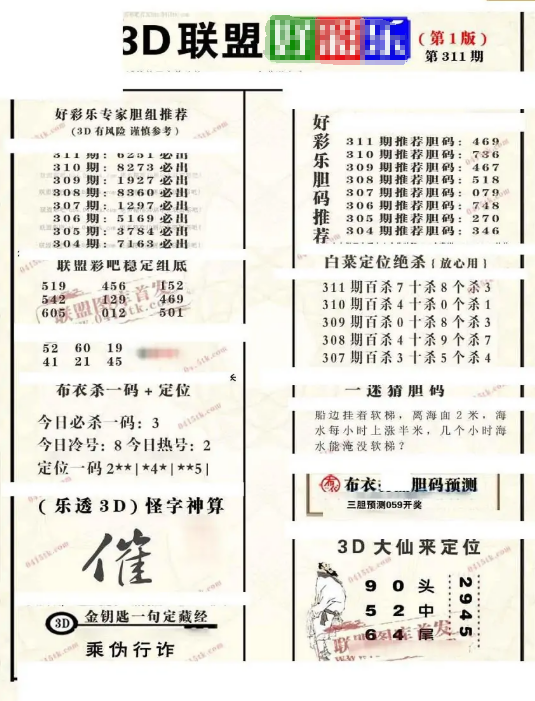 3D联盟好彩乐
(第1版)
第311期
好彩乐专家胆组推荐
(3D有风险 谨慎参考)
311期: 6251必出
310期: 8273必出
309期: 1927必出
308期: 8360必出
307期: 1297必出
306期: 5169必出
305期: 3784必出
304期: 7163必出
联盟彩吧稳定组底
519 456 152
542 129 469
605 012 501
52 60 19
41 21 45
布衣杀一码+定位
今日必杀一码: 3
今日冷号: 8 今日热号: 2
定位一码 2**|*4*|**5|
(乐透3D)怪字神算
催
3D 金钥匙一句定藏经
乘伪行诈
好彩乐胆码推荐
311期推荐胆码: 469
310期推荐胆码: 736
309期推荐胆码: 467
308期推荐胆码: 518
307期推荐胆码: 079
306期推荐胆码: 748
305期推荐胆码: 270
304期推荐胆码: 346
白菜定位绝杀(放心用)
311期百杀7十杀8个杀3
310期百杀4十杀0个杀1
309期百杀0十杀8个杀3
308期百杀4十杀9个杀7
307期百杀3十杀5个杀4
一迷猜胆码
船边挂着软梯, 离海面2米, 海
水每小时上涨半米, 几个小时海
水能淹没软梯?
布衣 胆码预测
三胆预测059开奖
3D大仙来定位
9 0 头
5 2 中
6 4 尾
2945
联盟图库首发
0415tk.com